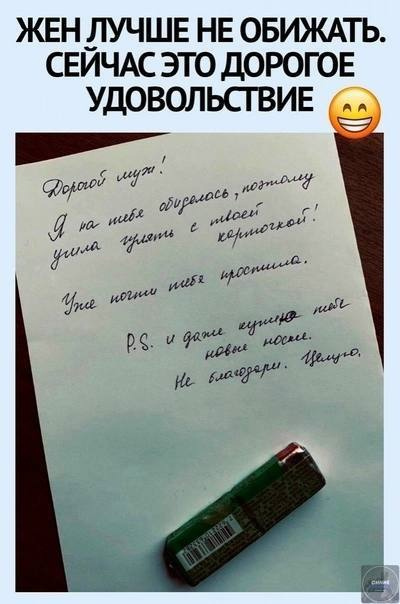 ЖЕН ЛУЧШЕ НЕ ОБИЖАТЬ.
СЕЙЧАС ЭТО ДОРОГОЕ
УДОВОЛЬСТВИЕ
Дорогой муж!
Я на тебя обиделась, поэтому
ушла гулять с твоей
карточкой!
Уже почти тебя простила.
P.S. и даже купила тебе
новые носки.
Не благодари. Целую.